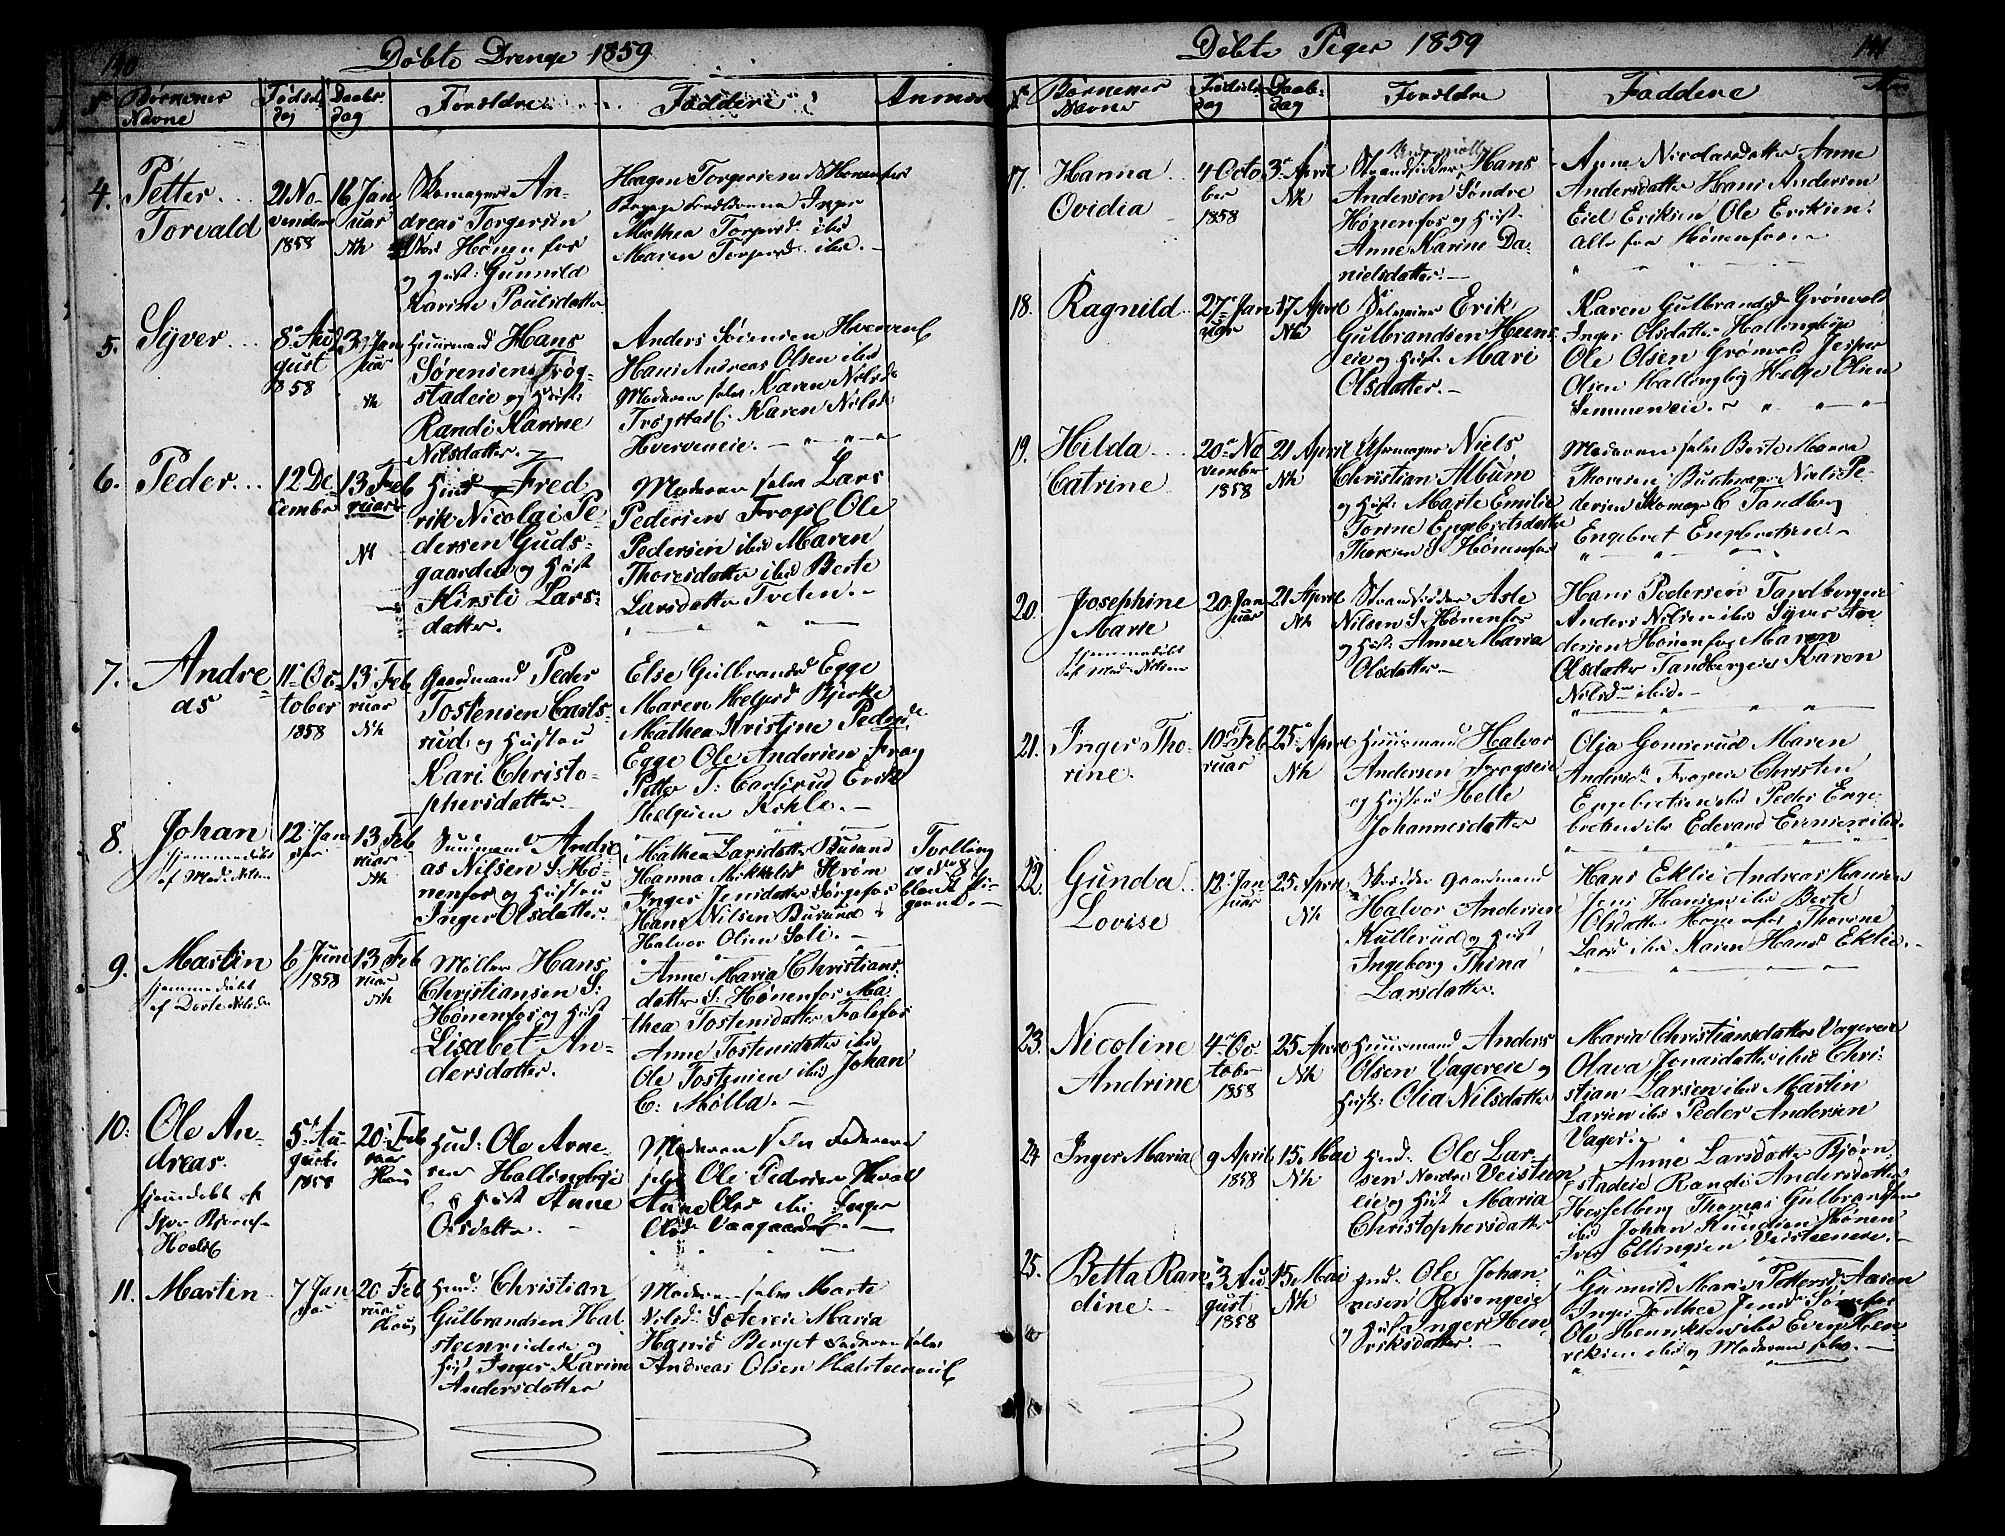 140
Døbte Drenge 1859
No
Børnenes Navne
Fødsels dag
Daabs dag
Forældre
Faddere
Anmærk
4. Petter Torvald
21 No-
vember
1858
16 Jan
uar
Nk
Skomager An-
dreas Torgersen
Nor Hønenfos
og Hust: Gunnild
Karine Poulsdatter
Haagen Torgersen N Hønenfos
Inger
Mathea Torgersd. ibid
Maren Torgersd. ibid. —
5. Syver
8de Au
gust
1858
23 Jan
uar
Nk
Huusmand Hans
Sørensen Trøg-
stadeie og Hust:
Randi Karine
Nilsdatter. —
Anders Sørensen Hverven
Hans Andreas Olsen ibid
Moderen selv Karen Nilsd
Trøgstad. Karen Nilsd
Hverveneie. —
6. Peder
12 De-
cember
13 Feb
ruar
Nk
Hmd Fred
rik Nicolai Pe-
dersen Guds-
gaarden og Hust
Kirsti Lars-
datter.
Moderen selv Lars
Pedersen Frogs. Ole
Pedersen ibid Maren
Thoresdatter ibid Berte
Larsdatter Tveten. —
7. Andre-
as
11 Oc-
tober
1858
13 Feb
ruar
Nk
Gaardmand Peder
Tostensen Carls-
rud og Hustru
Kari Christo-
phersdatter. —
Else Gulbrandsd Egge
Maren Helgesd Bjerke
Mathea Kristine Pedersd
Egge Ole Andersen Frog
Petter T: Carlsrud Erik
Helgesen Kihle. —
8. Johan
hjemmedøbt
af Mad: Nilsen
12 Jan
uar
13 Feb
ruar
Nk
Huusmand Andre
as Nilsen S: Hø-
nenfos og Hustru
Inger Olsdatter.
Mathea Larsdatter Busund
Hanna Mikkelsd Strøm
Inger Jensdatter Sørgefos
Hans Nilsen Busund
Halvor Olsen Soli. —
Tvilling
ved No 8
blandt Pi-
gerne. —
9. Martin
hjemmedøbt
af Dorte Nilsda
6 Juni
1858
13 Feb
ruar
Nk
Møller Hans
Christiansen S:
Hønenfos og Hust
Lisabet An-
dersdatter.
Anne Maria Christians-
datter S: Hønenfos Ma-
thea Tostensdatter Folefos
Anne Tostensdatter ibid
Ole Tostensen ibid Johan
C: Mølla. —
10. Ole An-
dreas.
hjemdøbt af
Syver
Hoels
5 Au-
gust
1858
20 Feb
ruar
Haug
Hmd: Ole Arne-
sen Hallingbyie
og Hust Anne
Olsdatter —
Moderen selv Faderen
selv Ole Pedersen
Anne Olsd ibid Inger
Olsd. Vaagaard. —
11. Martin
7 Jan
uar
20 Feb
ruar
Haug
Hmd: Christian
Gulbrandsen Hal-
steenreiderie og
Hust Inger Karine
Andersdatter
Moderen selv Marte
Nilsd: Sætereie Maria
Hansd Berget Faderen selv
Andreas Olsen Halsteensreid
Døbte Piger 1859
141
No
Børnenes Navne
Fødsels dag
Daabs dag
Forældre
Faddere
Anm
17. Hanna
Ovidia
4 Octo
ber
1858
3 April
Nk
Strandsidder Hans
Andersen Søndre
Hønenfos og Hust.
Anne Karine Da-
nielsdatter. —
Anne Nicolaisdatter Anne
Andersdatter Hans Andersen
Eid Eriksen Ole Eriksen.
Alle fra Hønenfossen
18. Ragnild
27 Jan
uar
17 April
Nk
Selveier Erik
Gulbrandsen Heens-
eie og Hust: Mari
Olsdatter. —
Karen Gulbrandsd Grønvold
Inger Olsdatter Hallingbye
Ole Olsen Grønvold Jesper
Olsen Hallingby Helge Olsen
Semmeneie. —
19. Hilda
Catrine
20 No
vember
1858
21 April
Nk
Uhrmager Niels
Christian Album
og Hust: Marte Emilie
Tonne Engebretsdatter
Thoresen S: Hønenfos
Moderen selv Berte Maria
Thoresen Buntmager Niels Pe-
dersen Skomager C Tandberg
Engebret Engebretsen. —
20. Josephine
Marie
hjemmedøbt
af Mad: Nilsen
20 Jan
uar
21 April
Nk
Strandsidder Asle
Nilsen S: Hønenfos
og Hust: Anne Maria
Olsdatter —
Hans Pedersen Tandbergeie
Anders Nilsen ibid Syver An-
dersen Hønenfos Maren
Olsdatter Tandbergeie Karen
Nilsd ibid. —
21. Inger Tho-
rine.
10 Feb
ruar
25 April
Nk
Huusmand Halvor
Andersen Frogseie
og Hustru Helle
Johannesdatter
Olia Gomsrud Maren
Andersd. Frogeie Christen
Engebretsen ibid Peder Enge-
bretsen ibid Edevard Evensen ibid.
22. Gunda
Lovise
12 Jan
uar
25 April
Nk
Gaardmand
Halvor Andersen
Kullerud og Hust
Ingeborg Thina
Larsdatter.
Hans Eklie Andreas Hansen
Jens Hansen ibid Berte
Olsdatter Thorine
Larsd ibid Karen Hans Eklie. —
23. Nicoline
Andrine
4 Oc-
tober
1858
25 April
Nk
Huusmand Anders
Olsen Vagereie og
Hust: Olia Nilsdatter
Maria Christiansdatter Vagereie
Olava Jonasdatter ibid Chri-
stian Larsen ibid Martin
Larsen ibid Peder Andersen
Vager. —
24 Inger Maria
9 April
1858
15 Mai
Nk
Hmd: Ole Lar-
sen Nordre Veisteen
eie og Hust Maria
Christophersdatter
Anne Larsdatter Bjørn-
stadeie Randi Andersdatter
Hesselberg Thomas Gulbrandsen
ibid Johan Knudsen Hønen
Iver Ellingsen Veisteeneie. —
25. Betta Ran
dine. —
3 Au-
gust
1858
15 Mai
Nk
Hmd: Ole Johan-
nesen Rosengeie
og Hust Inger Hen-
riksdatter. —
Gunnild Maria Pettersd Aasen
Inger Dorthea Jensd
Ole Henriksen ibid Even Hen-
riksen ibid og Moderen selv. —